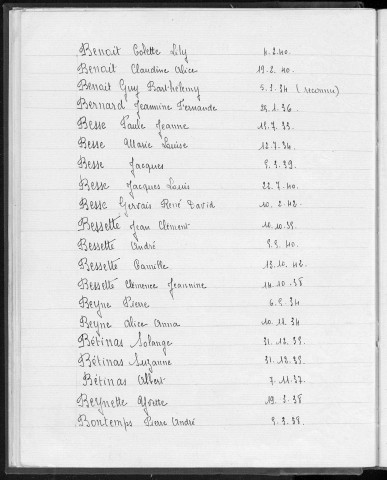 Benoit Colette Lily 4.2.40.
Benoit Claudine Alice 19.2.40.
Benoit Guy Barthélemy 5.1.34 (reconnu)
Bernard Jeannine Fernande 24.1.36.
Besse Paule Jeanne 11.7.33.
Besse Marie Louise 12.7.34.
Besse Jacques 9.3.39.
Besse Jacques Louis 22.7.40.
Besse Gervais René David 10.2.42.
Bessette Jean Clément 10.10.38.
Bessette André 9.9.40.
Bessette Camille 13.10.42.
Bessette Clémence Jeannine 14.10.35
Beyne Pierre 6.9.34
Beyne Alice Anna 10.11.34
Bétinas Solange 31.12.38.
Bétinas Suzanne 31.12.38.
Bétinas Albert 7.11.37.
Beynette Yvette 19.1.35
Bontemps Pierre André 9.3.38.